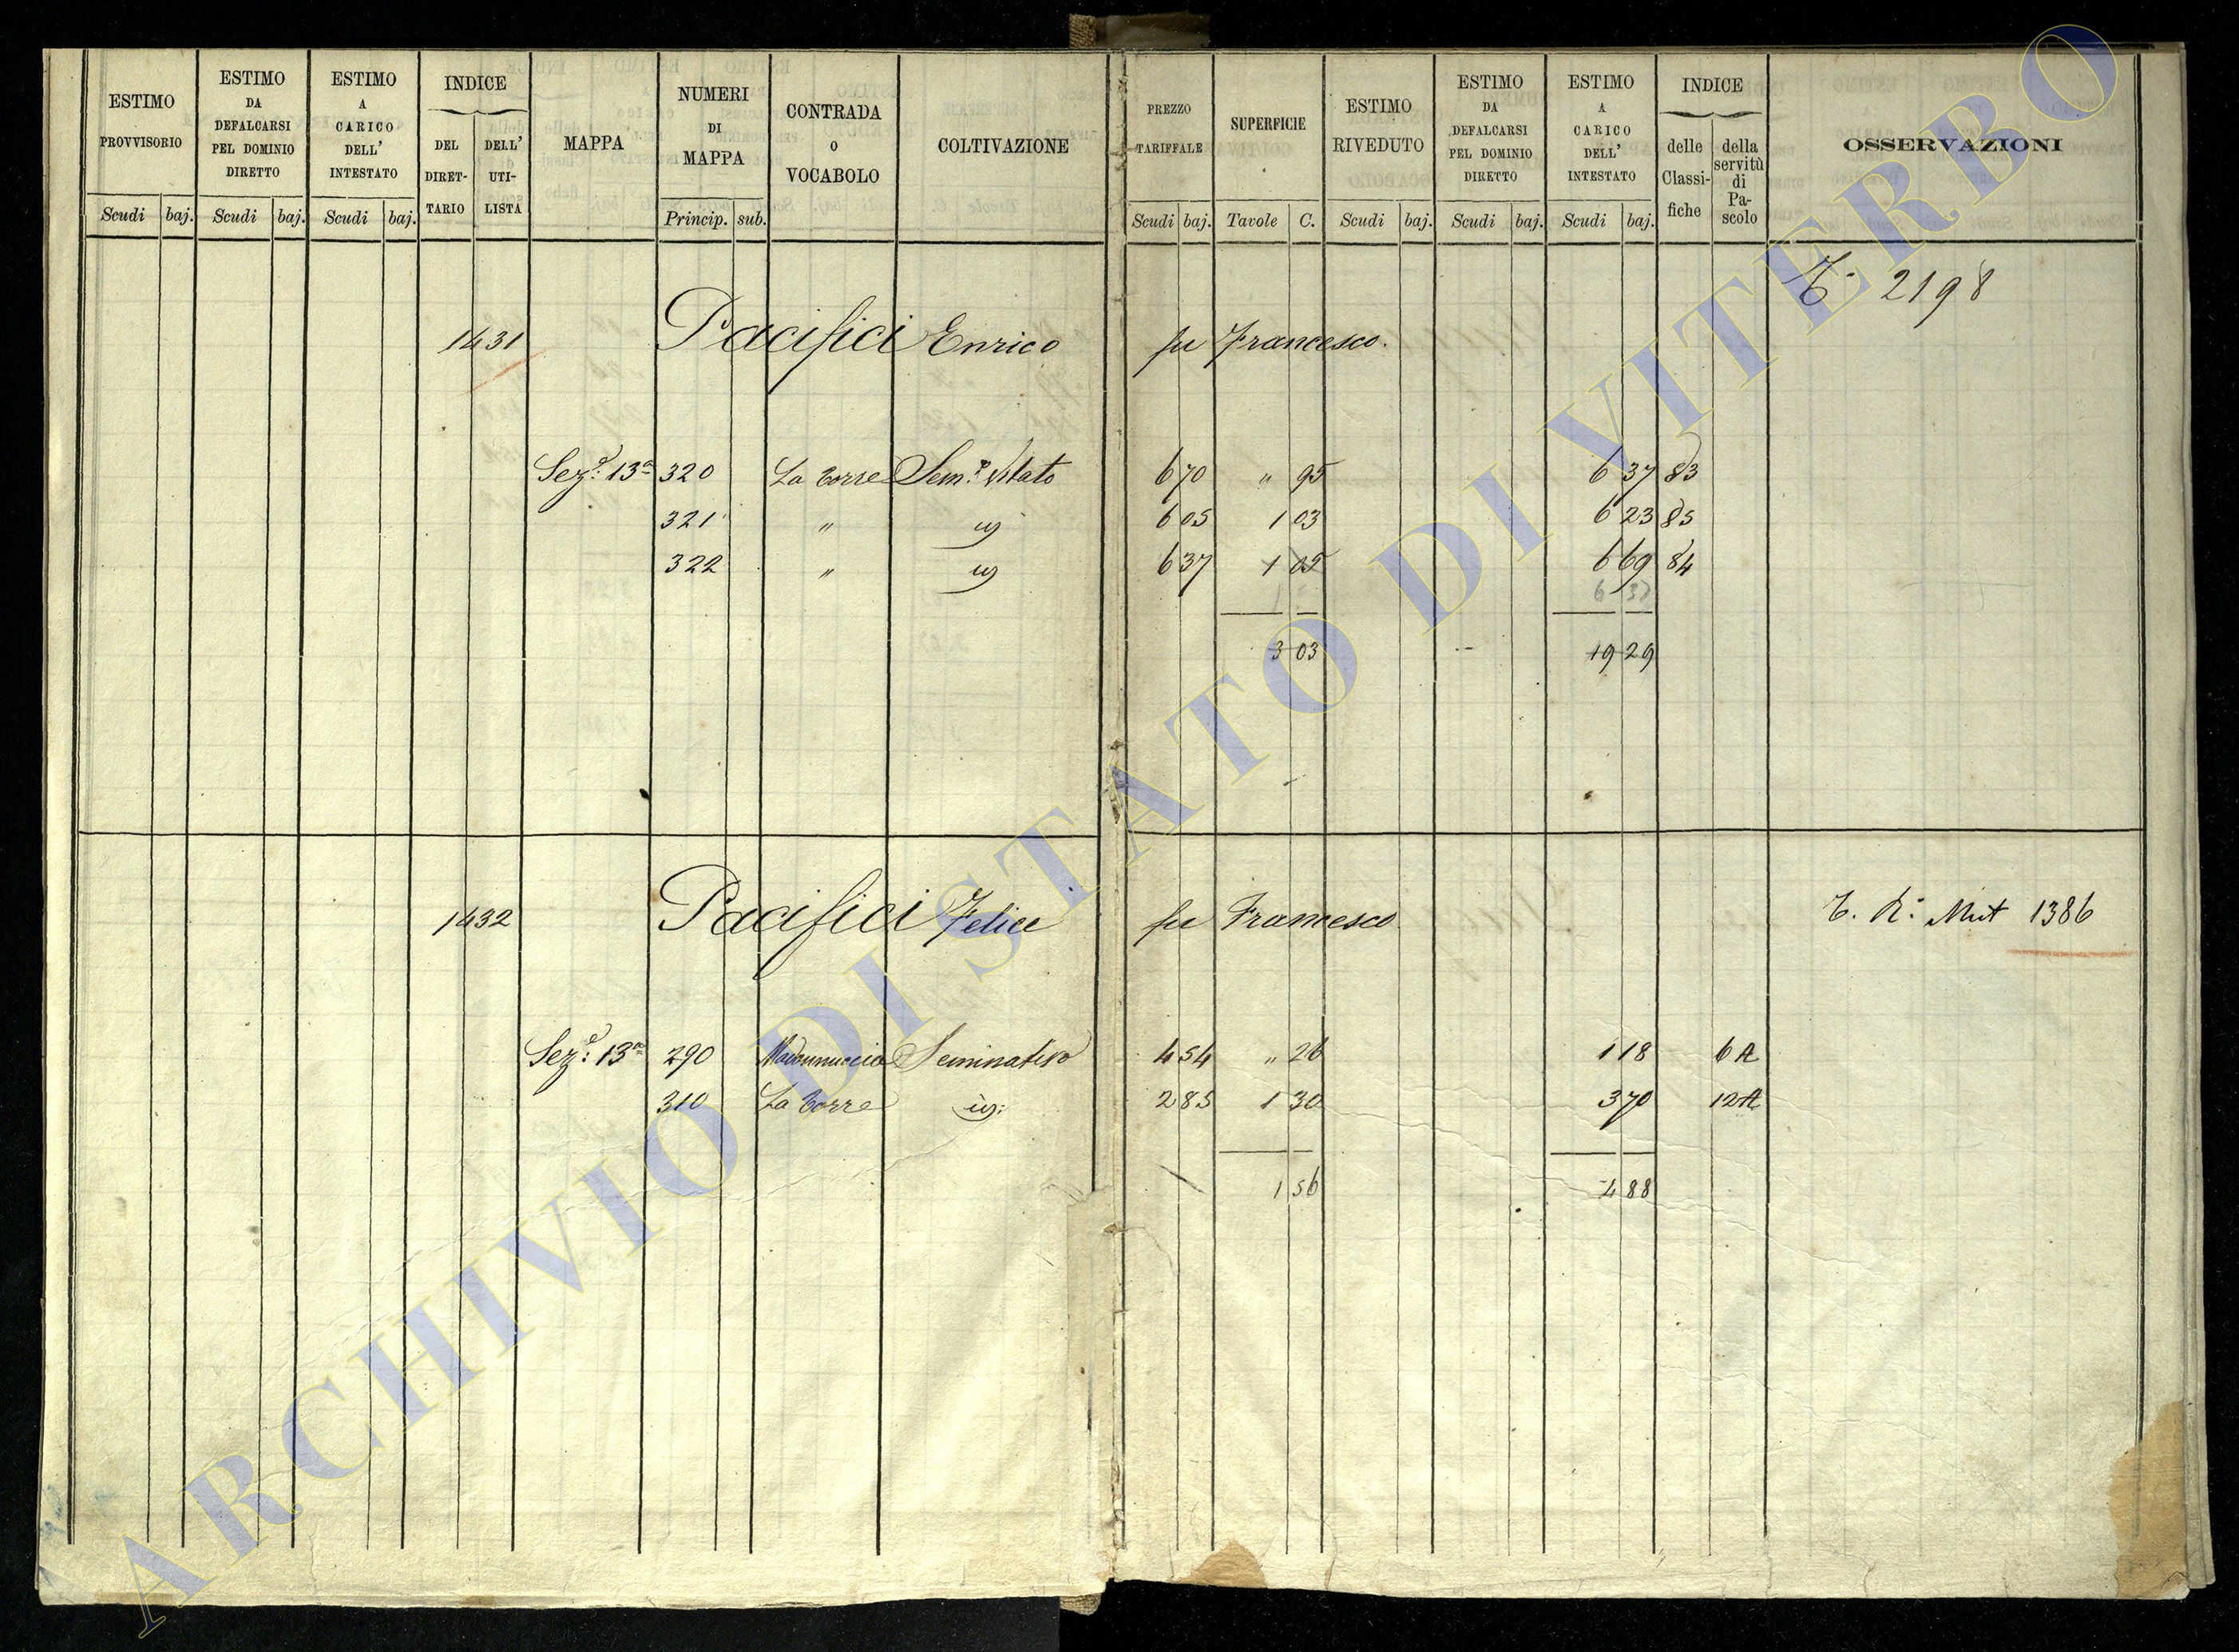 ESTIMO PROVVISORIO
Scudi baj.
ESTIMO DA DEFALCARSI PEL DOMINIO DIRETTO
Scudi baj.
ESTIMO A CARICO DELL' INTESTATO
Scudi baj.
INDICE
DEL DIRET-TARIO
DELL' UTI-LISTA
MAPPA
NUMERI DI MAPPA
Princip. sub.
CONTRADA O VOCABOLO
COLTIVAZIONE
PREZZO TARIFFALE
Scudi baj.
SUPERFICIE
Tavole C.
ESTIMO RIVEDUTO
Scudi baj.
ESTIMO DA DEFALCARSI PEL DOMINIO DIRETTO
Scudi baj.
ESTIMO A CARICO DELL' INTESTATO
Scudi baj.
INDICE
delle Classi-fiche
della servitù di Pa-scolo
OSSERVAZIONI
T. 2198
1431 Pacifici Enrico fu Francesco.
Sez.e: 13a 320 La Torre Sem.o Vitato 6 70 " 95 6 37 83
321 " id 6 05 1 03 6 23 85
322 " id 6 37 1 05 6 69 84
3 03 19 29
1432 Pacifici Felice fu Francesco T. R: Mut 1386
Sez.e: 13a 290 Madonnuccia Seminativo 4 54 " 26 1 18 6 A
310 La Torre id: 2 85 1 30 3 70 12 A
1 56 4 88
ARCHIVIO DI STATO DI VITERBO